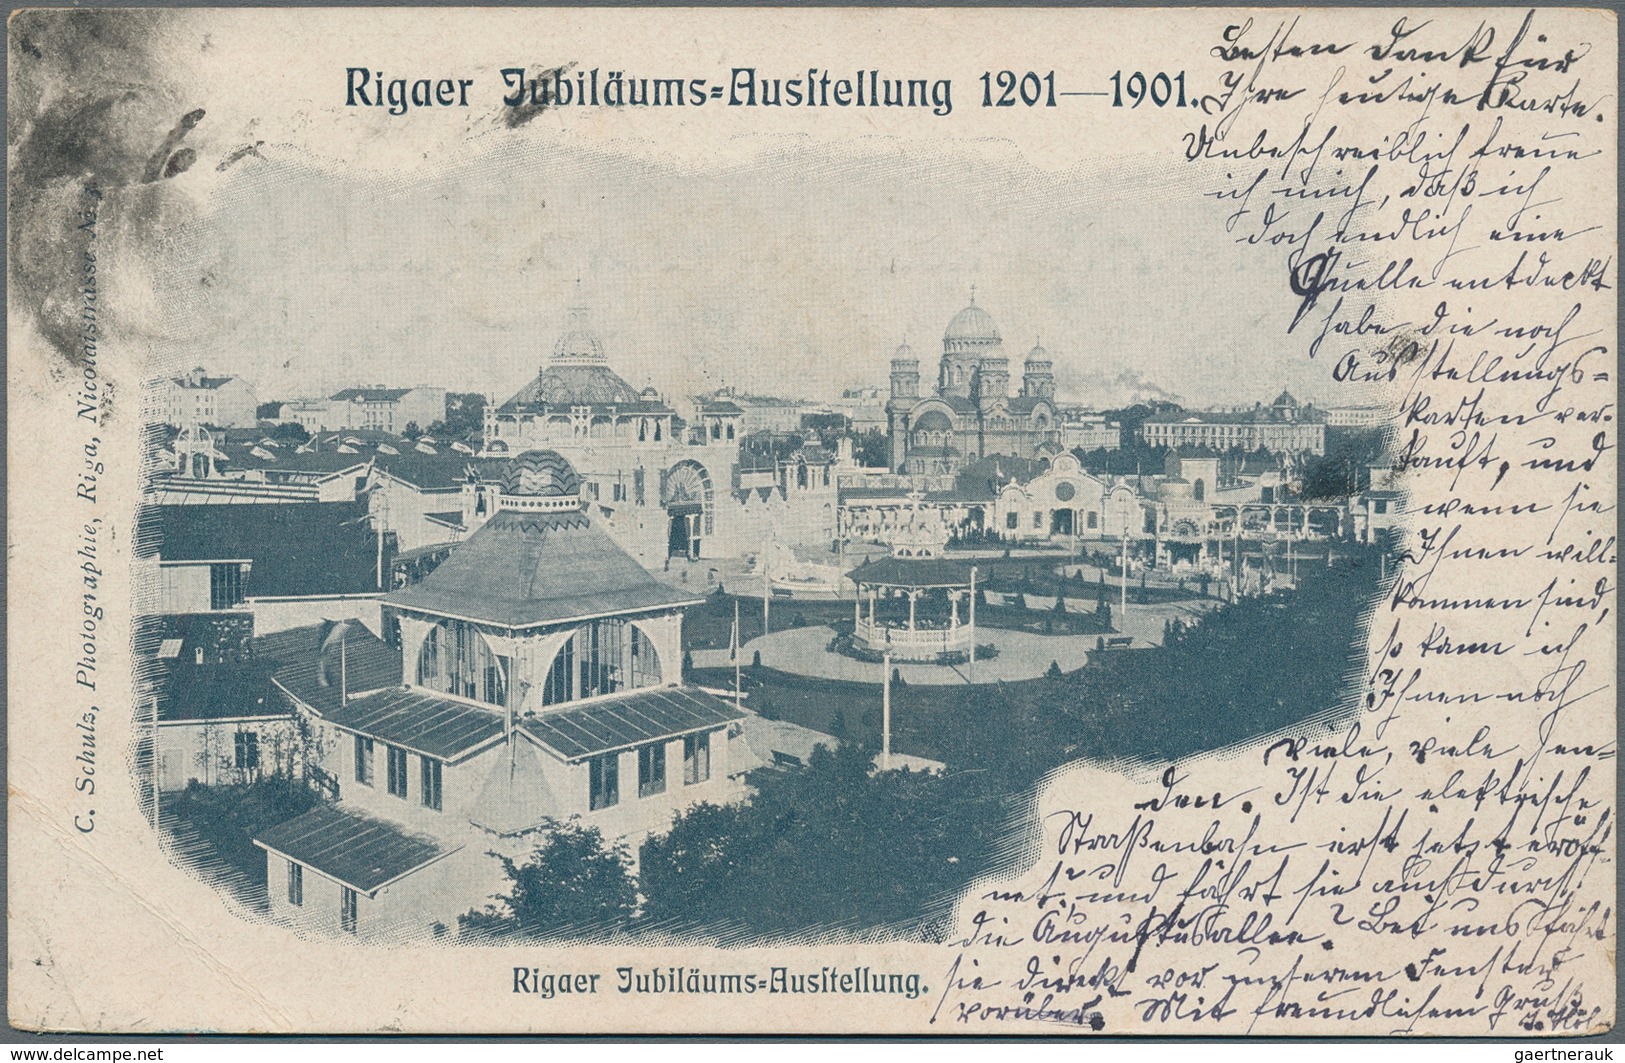 Rigaer Jubiläums=Ausstellung 1201—1901.
Besten Dank für
Ihre heutige Karte.
Unbeschreiblich freue
ich mich, daß ich
doch endlich eine
Quelle entdeckt
habe die noch
Ausstellungs=
karten ver-
kauft, und
wenn sie
Ihnen will=
kommen sind,
so kann ich
Ihnen noch
viele, viele sen=
den. Ist die elektrische
Straßenbahn erst jetzt eröff-
net? und fährt sie auch durch
die Augustusallee? Bei uns fährt
sie direkt vor unserem Fenster
vorüber. Mit freundlichem Gruß
C. Schulz, Photographie, Riga, Nicolaistrasse № 3
Rigaer Jubiläums=Ausstellung.
www.delcampe.net
gaertnerauk